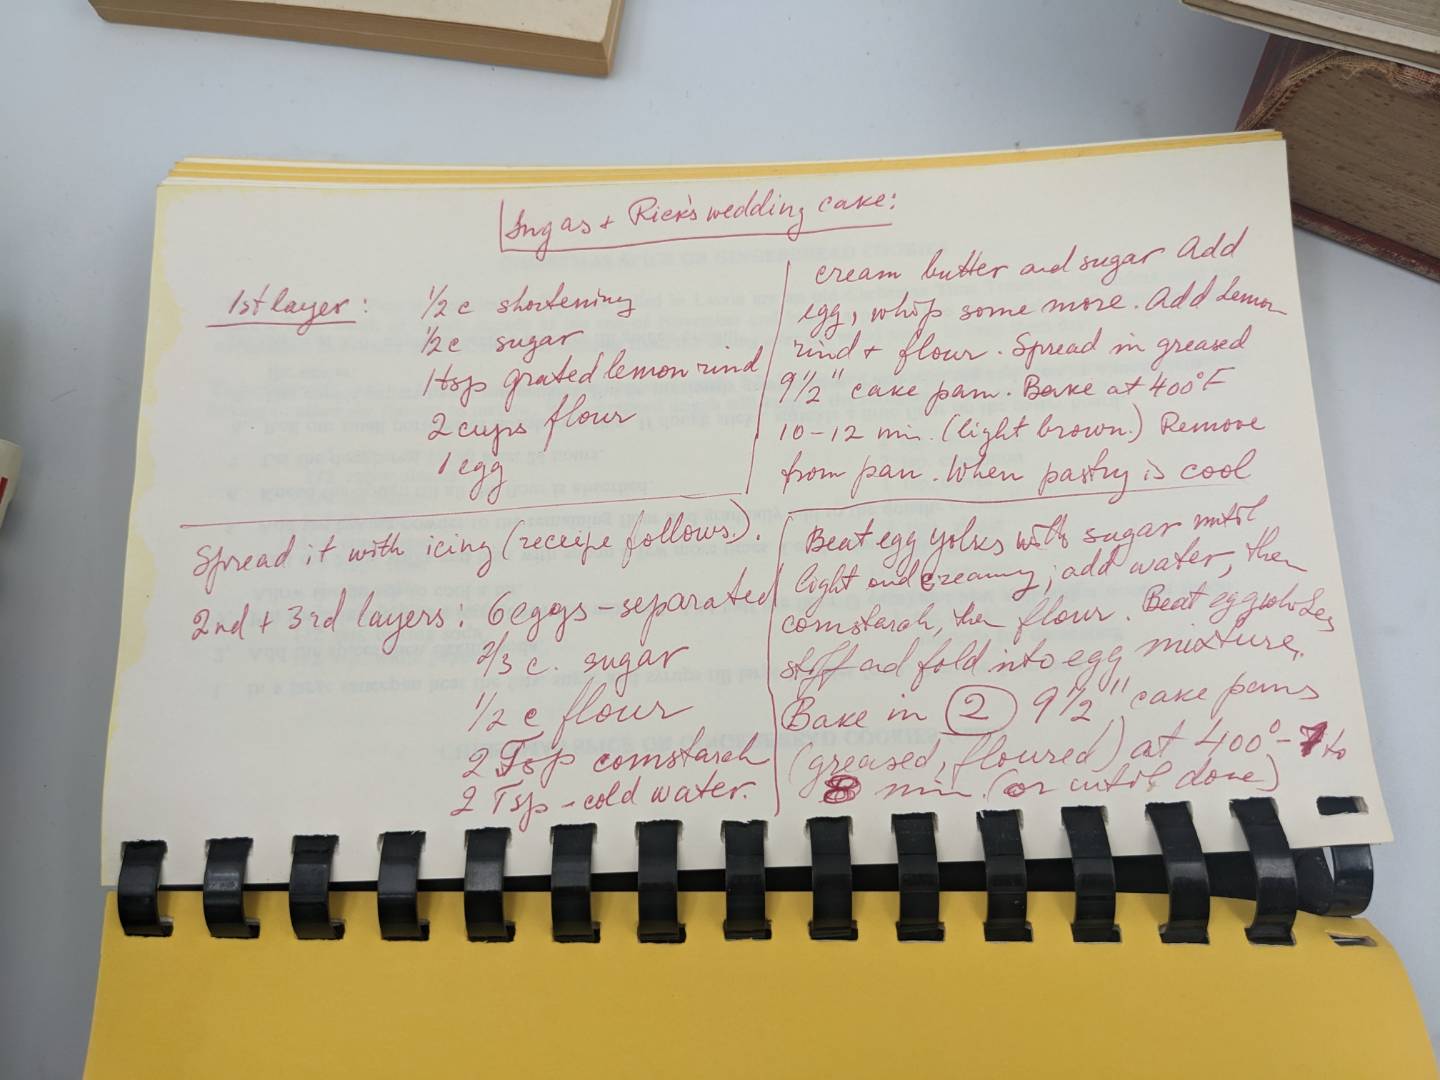 Ingas + Rick's wedding cake:
1st layer: 1/2 c shortening
1/2 c sugar
1 tsp grated lemon rind
2 cups flour
1 egg
cream butter and sugar Add
egg, whip some more. Add Lemon
rind + flour. Spread in greased
9 1/2" cake pan. Bake at 400°F
10-12 min. (light brown.) Remove
from pan. When pastry is cool
Spread it with icing (receipe follows.).
2nd + 3rd layers: 6 eggs - separated
2/3 c. sugar
1/2 c flour
2 Tsp cornstarch
2 Tsp - cold water.
Beat egg yolks with sugar until
light and creamy; add water, then
cornstarch, then flour. Beat egg
stiff and fold into egg mixture.
Bake in 2 9 1/2" cake pans
(greased, floured) at 400° - 7 to
8 min. (or until done)